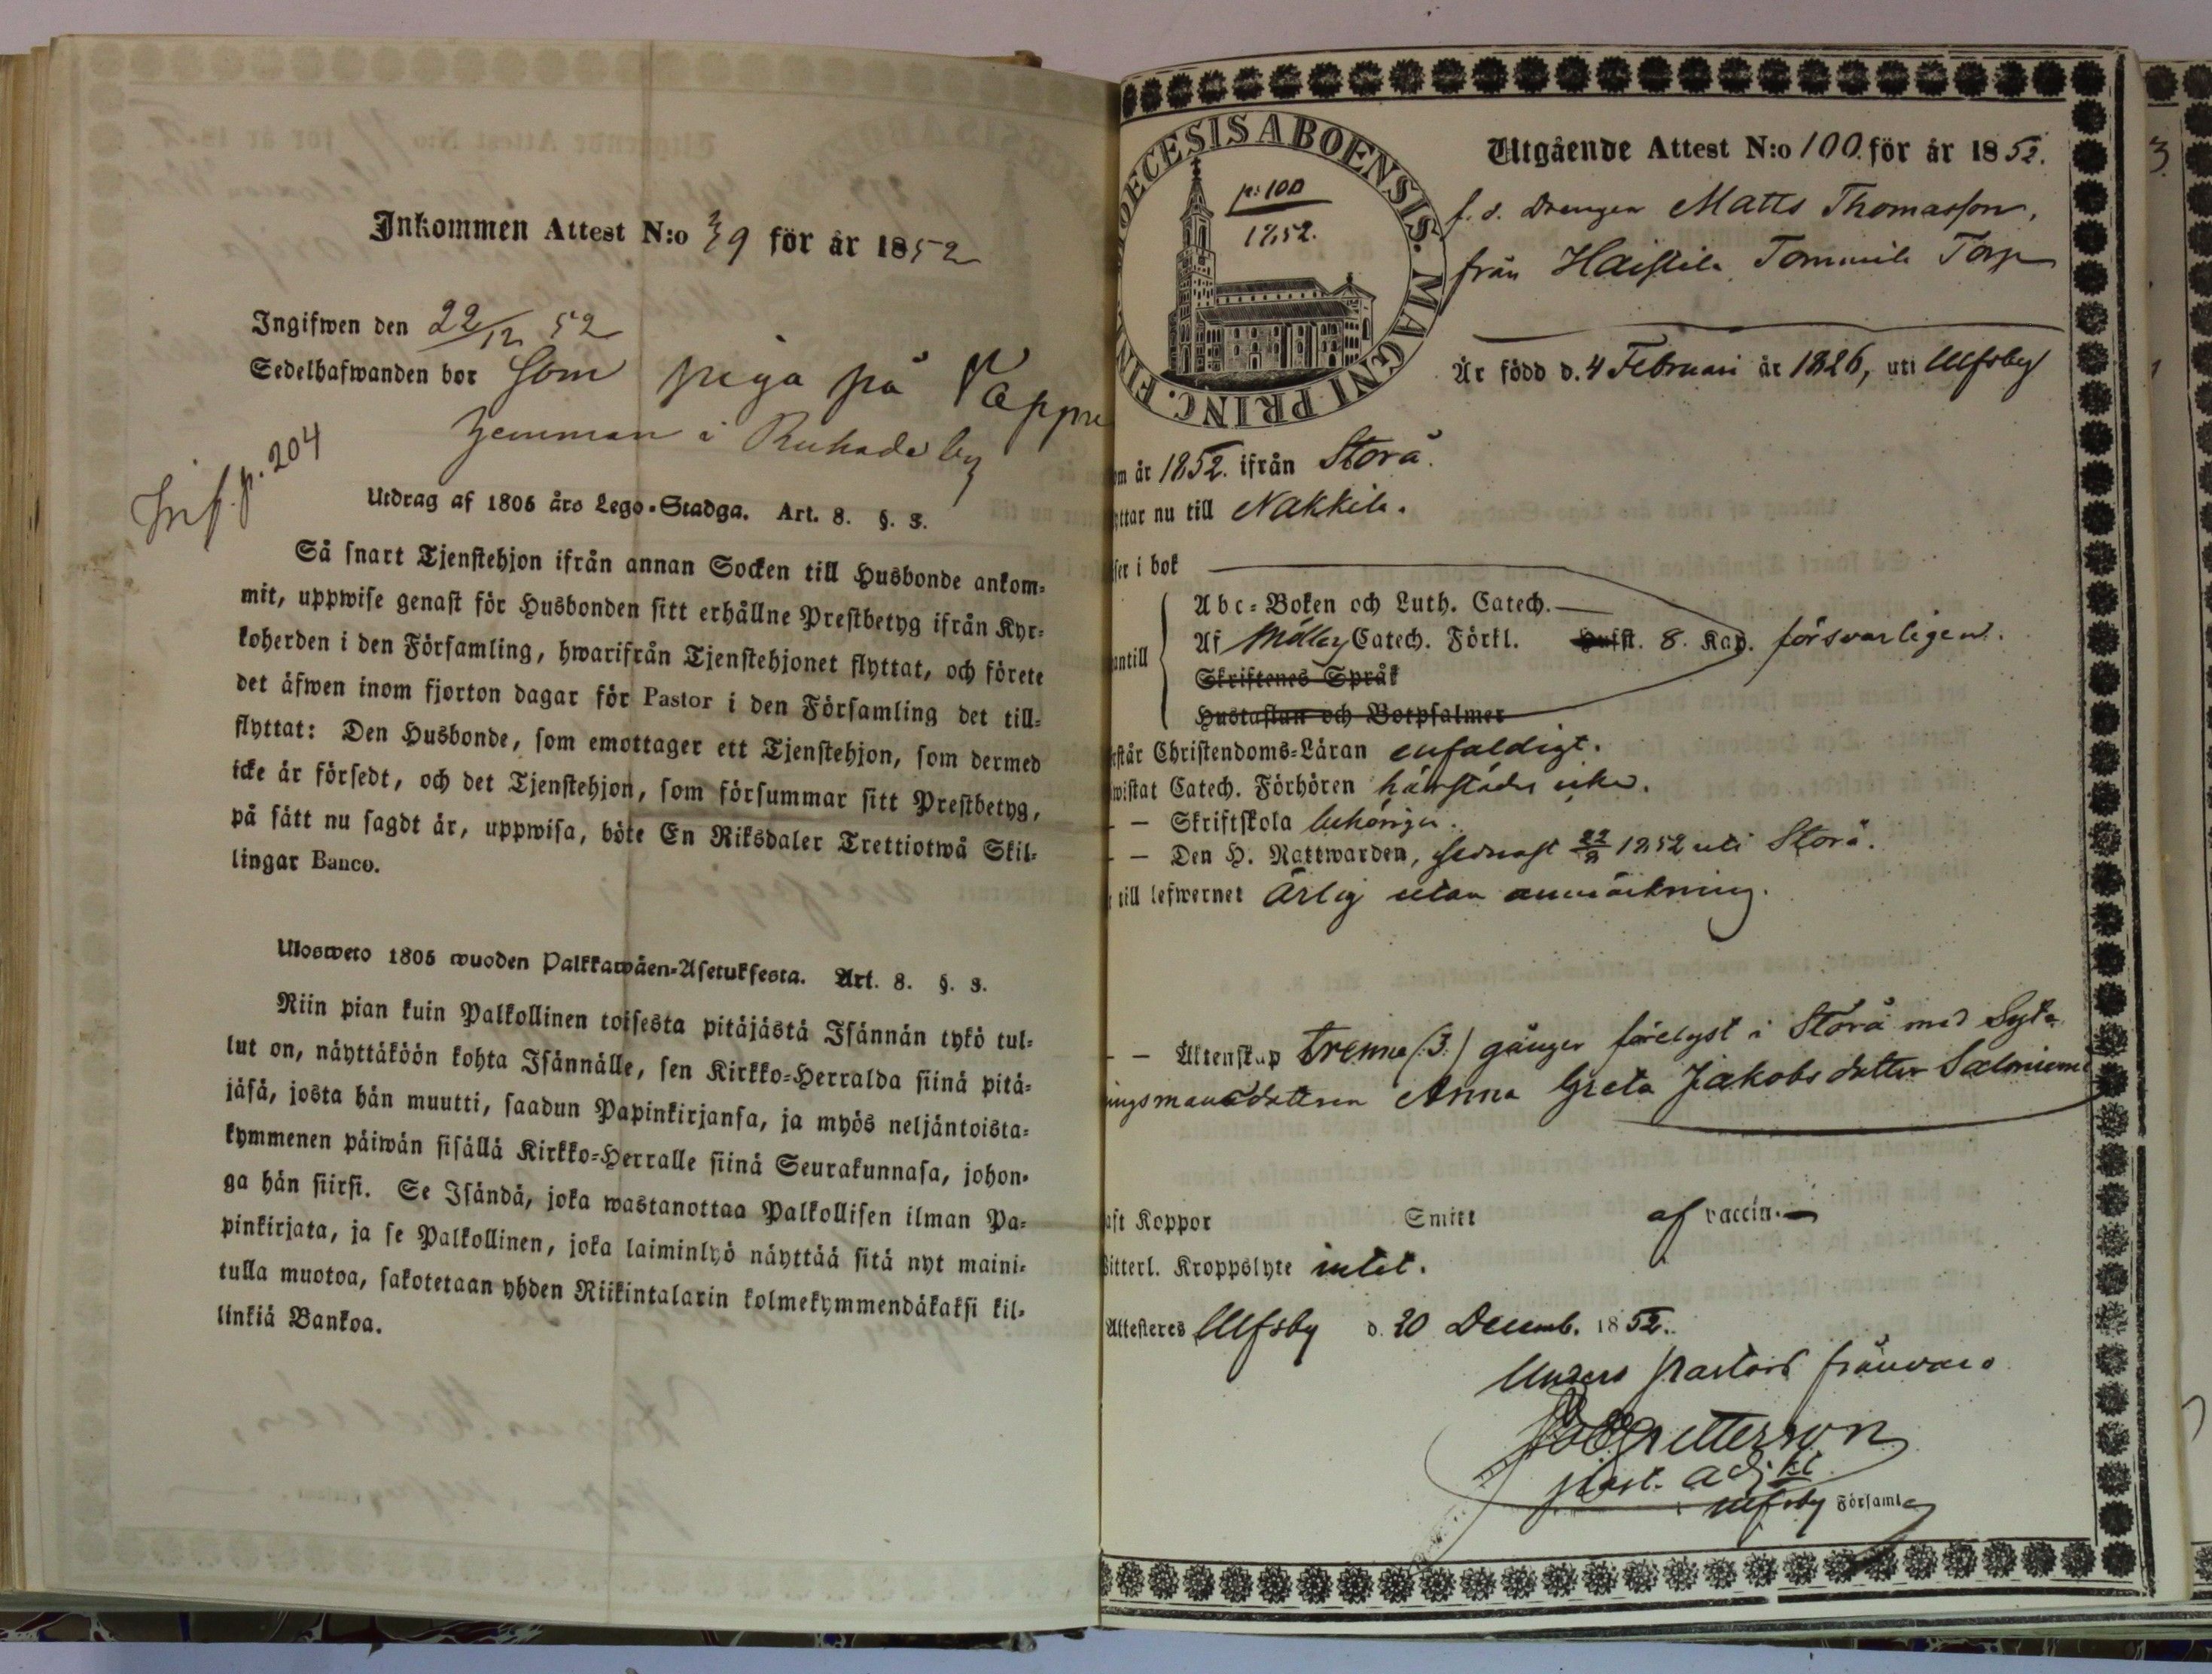 Inkommen Attest N:o 39 för år 1852
Ingifwen den 22/12 52
Sedelhafwanden bor som piga på
hemman i by
Inf. p. 204
Utdrag af 1805 års Lego-Stadga. Art. 8. §. 3.
Så snart Tjenstehjon ifrån annan Socken till Husbonde ankom-
mit, uppwise genast för Husbonden sitt erhållne Prestbetyg ifrån Kyr-
koherden i den Församling, hwarifrån Tjenstehjonet flyttat, och förete
det äfwen inom fjorton dagar för Pastor i den Församling det till-
flyttat: Den Husbonde, som emottager ett Tjenstehjon, som dermed
icke är försedt, och det Tjenstehjon, som försummar sitt Prestbetyg,
på sätt nu sagdt är, uppwisa, böte En Riksdaler Trettiotwå Skil-
lingar Banco.
Ulosweto 1805 wuoden Palkkawäen-Asetuksesta. Art. 8. §. 3.
Niin pian kuin Palkollinen toisesta pitäjästä Isännän tykö tul-
lut on, näyttäköön kohta Isännälle, sen Kirkko-Herralda siinä pitä-
jäsä, josta hän muutti, saadun Papinkirjansa, ja myös neljäntoista-
kymmenen päiwän sisällä Kirkko-Herralle siinä Seurakunnasa, johon-
ga hän siirsi. Se Isändä, joka wastanottaa Palkollisen ilman Pa-
pinkirjata, ja se Palkollinen, joka laiminlyö näyttää sitä nyt maini-
tulla muotoa, sakotetaan yhden Riikintalarin kolmekymmendäkaksi kil-
linkiä Bankoa.
DIOECESIS ABOENSIS. MAGNI PRINC. FIN
p: 100
1852.
Utgående Attest N:o 100. för år 1852.
f. d. Drengen Matts Thomasson,
från Haistila Tommila Torp
Är född d. 4 Februari år 1826, uti Ulfsby
om år 1852. ifrån Storå.
ttar nu till Nakkila.
ser i bok
Abc-Boken och Luth. Catech.
antill Af Möllers Catech. Förkl. Hufst. 8. Kap. försvarligen.
Skriftenes Språk
Hustaflan och Botpsalmer
står Christendoms-Läran enfaldigt.
wistat Catech. Förhören härstädes icke.
— Skriftskola behörigen.
— Den H. Nattwarden, sednast 22/8 1852 uti Storå.
till lefwernet ärlig utan anmärkning.
— Äktenskap trenne (3.) gånger förelyst i Storå med
ingsmansdottren Anna Greta Jakobsdotter Saloniemi
aft Koppor Smitt af vaccin.
Witterl. Kroppslyte intet.
Attesteres Ulfsby d. 20 Decemb. 1852.
Under Pastors frånvaro
Petterson
Past. Adjkt
i Ulfsby Församl.